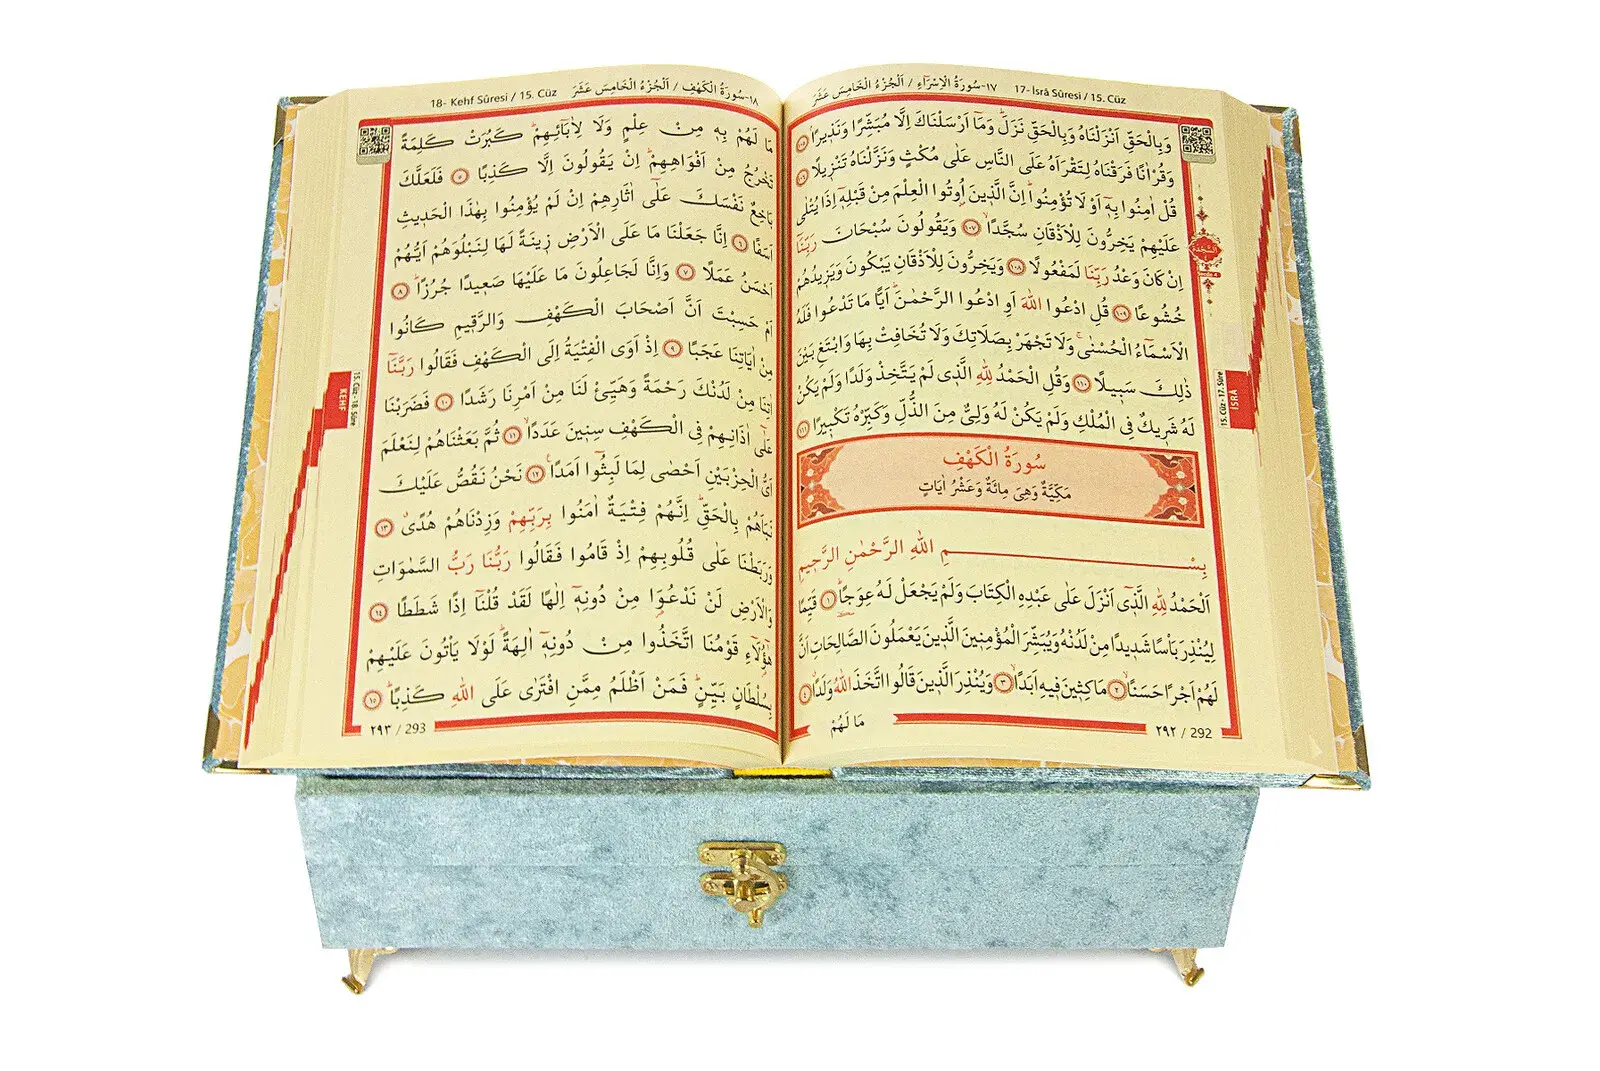 ١٧-سُورَةُ الْاِسْرَاءِ / اَلْجُزْءُ الْخَامِسَ عَشَرَ 17- İsrâ Sûresi / 15. Cüz
وَبِالْحَقِّ اَنْزَلْنَاهُ وَبِالْحَقِّ نَزَلَۜ وَمَٓا اَرْسَلْنَاكَ اِلَّا مُبَشِّرًا وَنَذ۪يرًاۢ ﴿١٠٥﴾
وَقُرْاٰنًا فَرَقْنَاهُ لِتَقْرَاَهُ عَلَى النَّاسِ عَلٰى مُكْثٍ وَنَزَّلْنَاهُ تَنْز۪يلًا ﴿١٠٦﴾
قُلْ اٰمِنُوا بِه۪ٓ اَوْ لَا تُؤْمِنُواۜ اِنَّ الَّذ۪ينَ اُو۫تُوا الْعِلْمَ مِنْ قَبْلِه۪ٓ اِذَا يُتْلٰى
عَلَيْهِمْ يَخِرُّونَ لِلْاَذْقَانِ سُجَّدًاۙ ﴿١٠٧﴾ وَيَقُولُونَ سُبْحَانَ رَبِّنَٓا
اِنْ كَانَ وَعْدُ رَبِّنَا لَمَفْعُولًا ﴿١٠٨﴾ وَيَخِرُّونَ لِلْاَذْقَانِ يَبْكُونَ وَيَز۪يدُهُمْ
خُشُوعًا ﴿١٠٩﴾ قُلِ ادْعُوا اللّٰهَ اَوِ ادْعُوا الرَّحْمٰنَۜ اَيًّا مَا تَدْعُوا فَلَهُ
الْاَسْمَٓاءُ الْحُسْنٰىۚ وَلَا تَجْهَرْ بِصَلَاتِكَ وَلَا تُخَافِتْ بِهَا وَابْتَغِ بَيْنَ
ذٰلِكَ سَب۪يلًا ﴿١١٠﴾ وَقُلِ الْحَمْدُ لِلّٰهِ الَّذ۪ي لَمْ يَتَّخِذْ وَلَدًا وَلَمْ يَكُنْ
لَهُ شَر۪يكٌ فِي الْمُلْكِ وَلَمْ يَكُنْ لَهُ وَلِيٌّ مِنَ الذُّلِّ وَكَبِّرْهُ تَكْب۪يرًا ﴿١١١﴾
سُورَةُ الْكَهْفِ
مَكِّيَّةٌ وَهِيَ مِائَةٌ وَعَشْرُ اٰيَاتٍ
بِسْمِ اللّٰهِ الرَّحْمٰنِ الرَّح۪يمِ
اَلْحَمْدُ لِلّٰهِ الَّذ۪ٓي اَنْزَلَ عَلٰى عَبْدِهِ الْكِتَابَ وَلَمْ يَجْعَلْ لَهُ عِوَجًاۜ ﴿١﴾ قَيِّمًا
لِيُنْذِرَ بَاْسًا شَد۪يدًا مِنْ لَدُنْهُ وَيُبَشِّرَ الْمُؤْمِن۪ينَ الَّذ۪ينَ يَعْمَلُونَ الصَّالِحَاتِ اَنَّ
لَهُمْ اَجْرًا حَسَنًاۙ ﴿٢﴾ مَاكِث۪ينَ ف۪يهِ اَبَدًاۙ ﴿٣﴾ وَيُنْذِرَ الَّذ۪ينَ قَالُوا اتَّخَذَ اللّٰهُ وَلَدًاۗ ﴿٤﴾
مَا لَهُمْ
٢٩٢ / 292
السَّجْدَة
15. Cüz - 17. Sûre
İSRÂ
١٨-سُورَةُ الْكَهْفِ / اَلْجُزْءُ الْخَامِسَ عَشَرَ 18- Kehf Sûresi / 15. Cüz
مَا لَهُمْ بِه۪ مِنْ عِلْمٍ وَلَا لِاٰبَٓائِهِمْۜ كَبُرَتْ كَلِمَةً
تَخْرُجُ مِنْ اَفْوَاهِهِمْۜ اِنْ يَقُولُونَ اِلَّا كَذِبًا ﴿٥﴾ فَلَعَلَّكَ
بَاخِعٌ نَفْسَكَ عَلٰٓى اٰثَارِهِمْ اِنْ لَمْ يُؤْمِنُوا بِهٰذَا الْحَد۪يثِ
اَسَفًا ﴿٦﴾ اِنَّا جَعَلْنَا مَا عَلَى الْاَرْضِ ز۪ينَةً لَهَا لِنَبْلُوَهُمْ اَيُّهُمْ
اَحْسَنُ عَمَلًا ﴿٧﴾ وَاِنَّا لَجَاعِلُونَ مَا عَلَيْهَا صَع۪يدًا جُرُزًاۜ ﴿٨﴾
اَمْ حَسِبْتَ اَنَّ اَصْحَابَ الْكَهْفِ وَالرَّق۪يمِ كَانُوا
مِنْ اٰيَاتِنَا عَجَبًا ﴿٩﴾ اِذْ اَوَى الْفِتْيَةُ اِلَى الْكَهْفِ فَقَالُوا رَبَّنَٓا
اٰتِنَا مِنْ لَدُنْكَ رَحْمَةً وَهَيِّئْ لَنَا مِنْ اَمْرِنَا رَشَدًا ﴿١٠﴾ فَضَرَبْنَا
عَلٰٓى اٰذَانِهِمْ فِي الْكَهْفِ سِن۪ينَ عَدَدًاۙ ﴿١١﴾ ثُمَّ بَعَثْنَاهُمْ لِنَعْلَمَ
اَيُّ الْحِزْبَيْنِ اَحْصٰى لِمَا لَبِثُٓوا اَمَدًا۟ ﴿١٢﴾ نَحْنُ نَقُصُّ عَلَيْكَ
نَبَاَهُمْ بِالْحَقِّۜ اِنَّهُمْ فِتْيَةٌ اٰمَنُوا بِرَبِّهِمْ وَزِدْنَاهُمْ هُدًىۗ ﴿١٣﴾
وَرَبَطْنَا عَلٰى قُلُوبِهِمْ اِذْ قَامُوا فَقَالُوا رَبُّنَا رَبُّ السَّمٰوَاتِ
وَالْاَرْضِ لَنْ نَدْعُوَا۬ مِنْ دُونِه۪ٓ اِلٰهًا لَقَدْ قُلْنَٓا اِذًا شَطَطًا ﴿١٤﴾
هٰٓؤُ۬لَٓاءِ قَوْمُنَا اتَّخَذُوا مِنْ دُونِه۪ٓ اٰلِهَةًۜ لَوْلَا يَاْتُونَ عَلَيْهِمْ
بِسُلْطَانٍ بَيِّنٍۜ فَمَنْ اَظْلَمُ مِمَّنِ افْتَرٰى عَلَى اللّٰهِ كَذِبًاۜ ﴿١٥﴾
٢٩٣ / 293
15. Cüz - 18. Sûre
KEHF